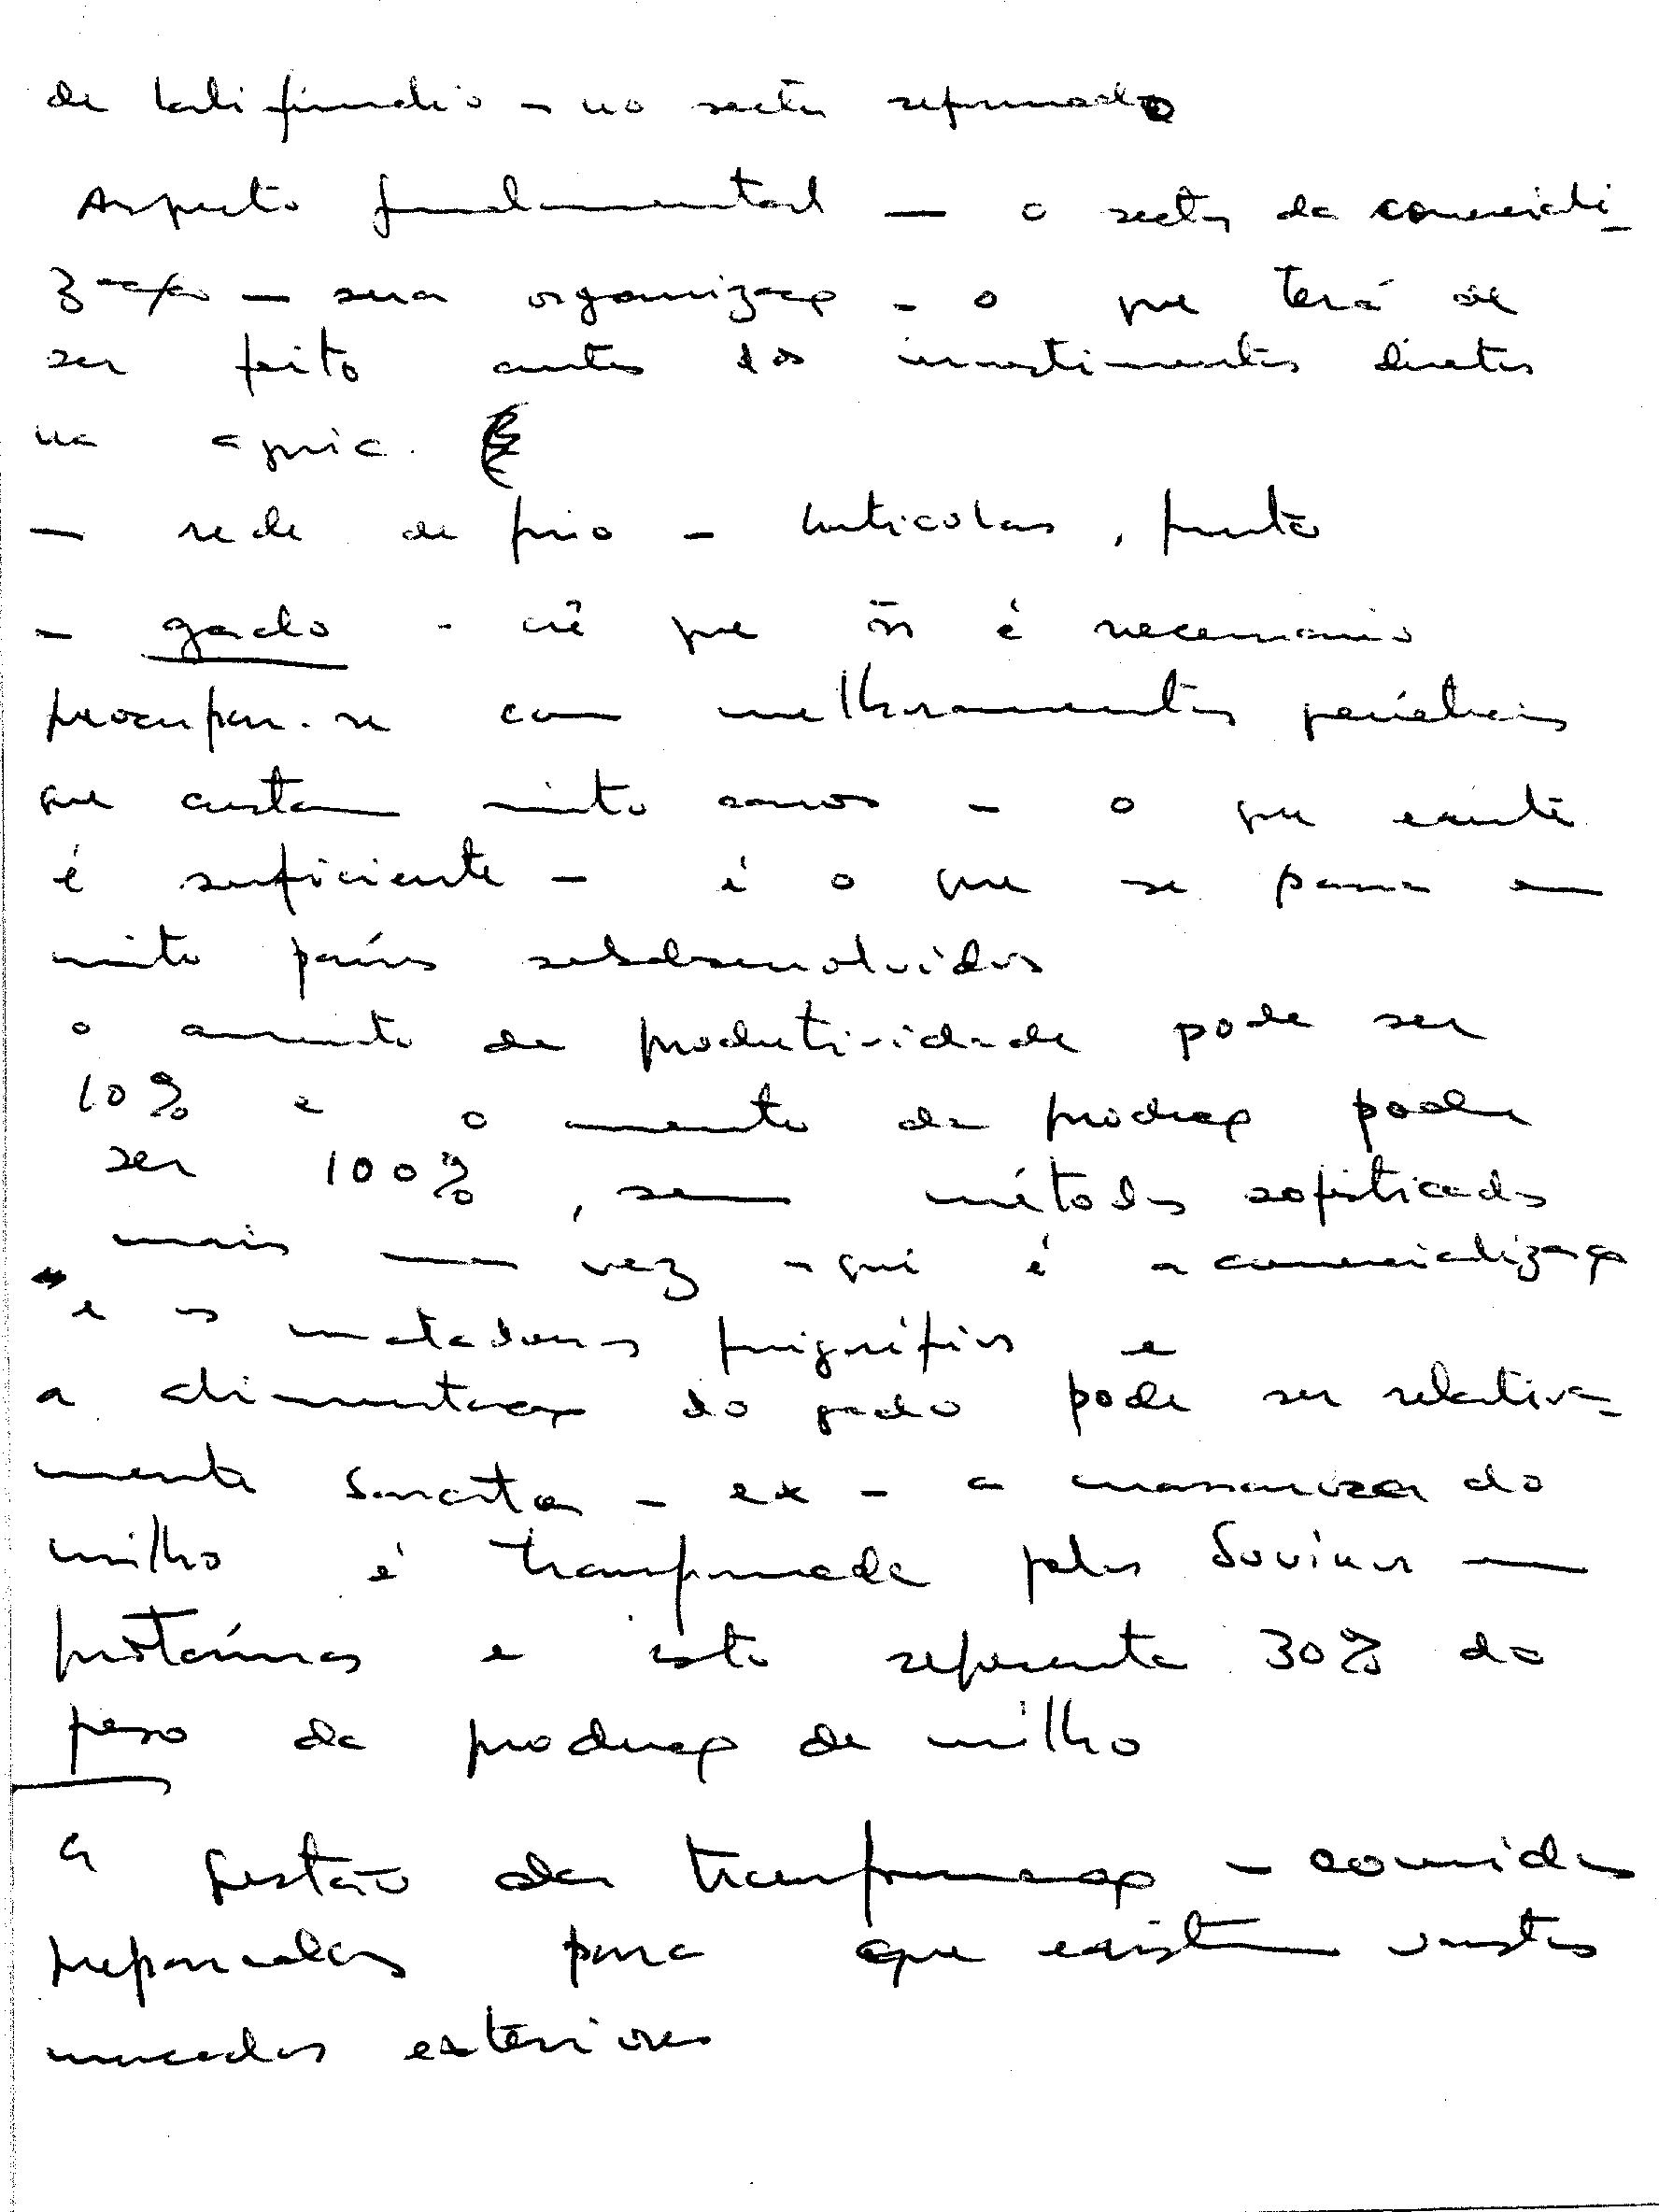 de latifúndio - no sector reformado
Aspecto fundamental — o sector da comerciali-
zação — sua organizaç - o que terá de
ser feito antes dos investimentos diretos
na agric.
— rede de frio - hortícolas, fruta
- gado - crê que ñ é necessário
preocupar-se com melhoramentos genéticos
que custam muito caros - o que existe
é suficiente - é o que se passa em
muito países subdesenvolvidos
o aumento de produtividade pode ser
10% e o aumento da produç poder
ser 100%, sem métodos sofisticados
mais uma vez aqui é a comercializaç
e os matadouros frigoríficos e
a alimentaç do gado pode ser relativa-
mente barata - ex - a massaroca do
milho é transformada pelos bovinos em
proteínas e isto representa 30% do
peso da produç de milho
a Gestão da transformaç - comidas
preparadas para que existem vastos
mercados exteriores